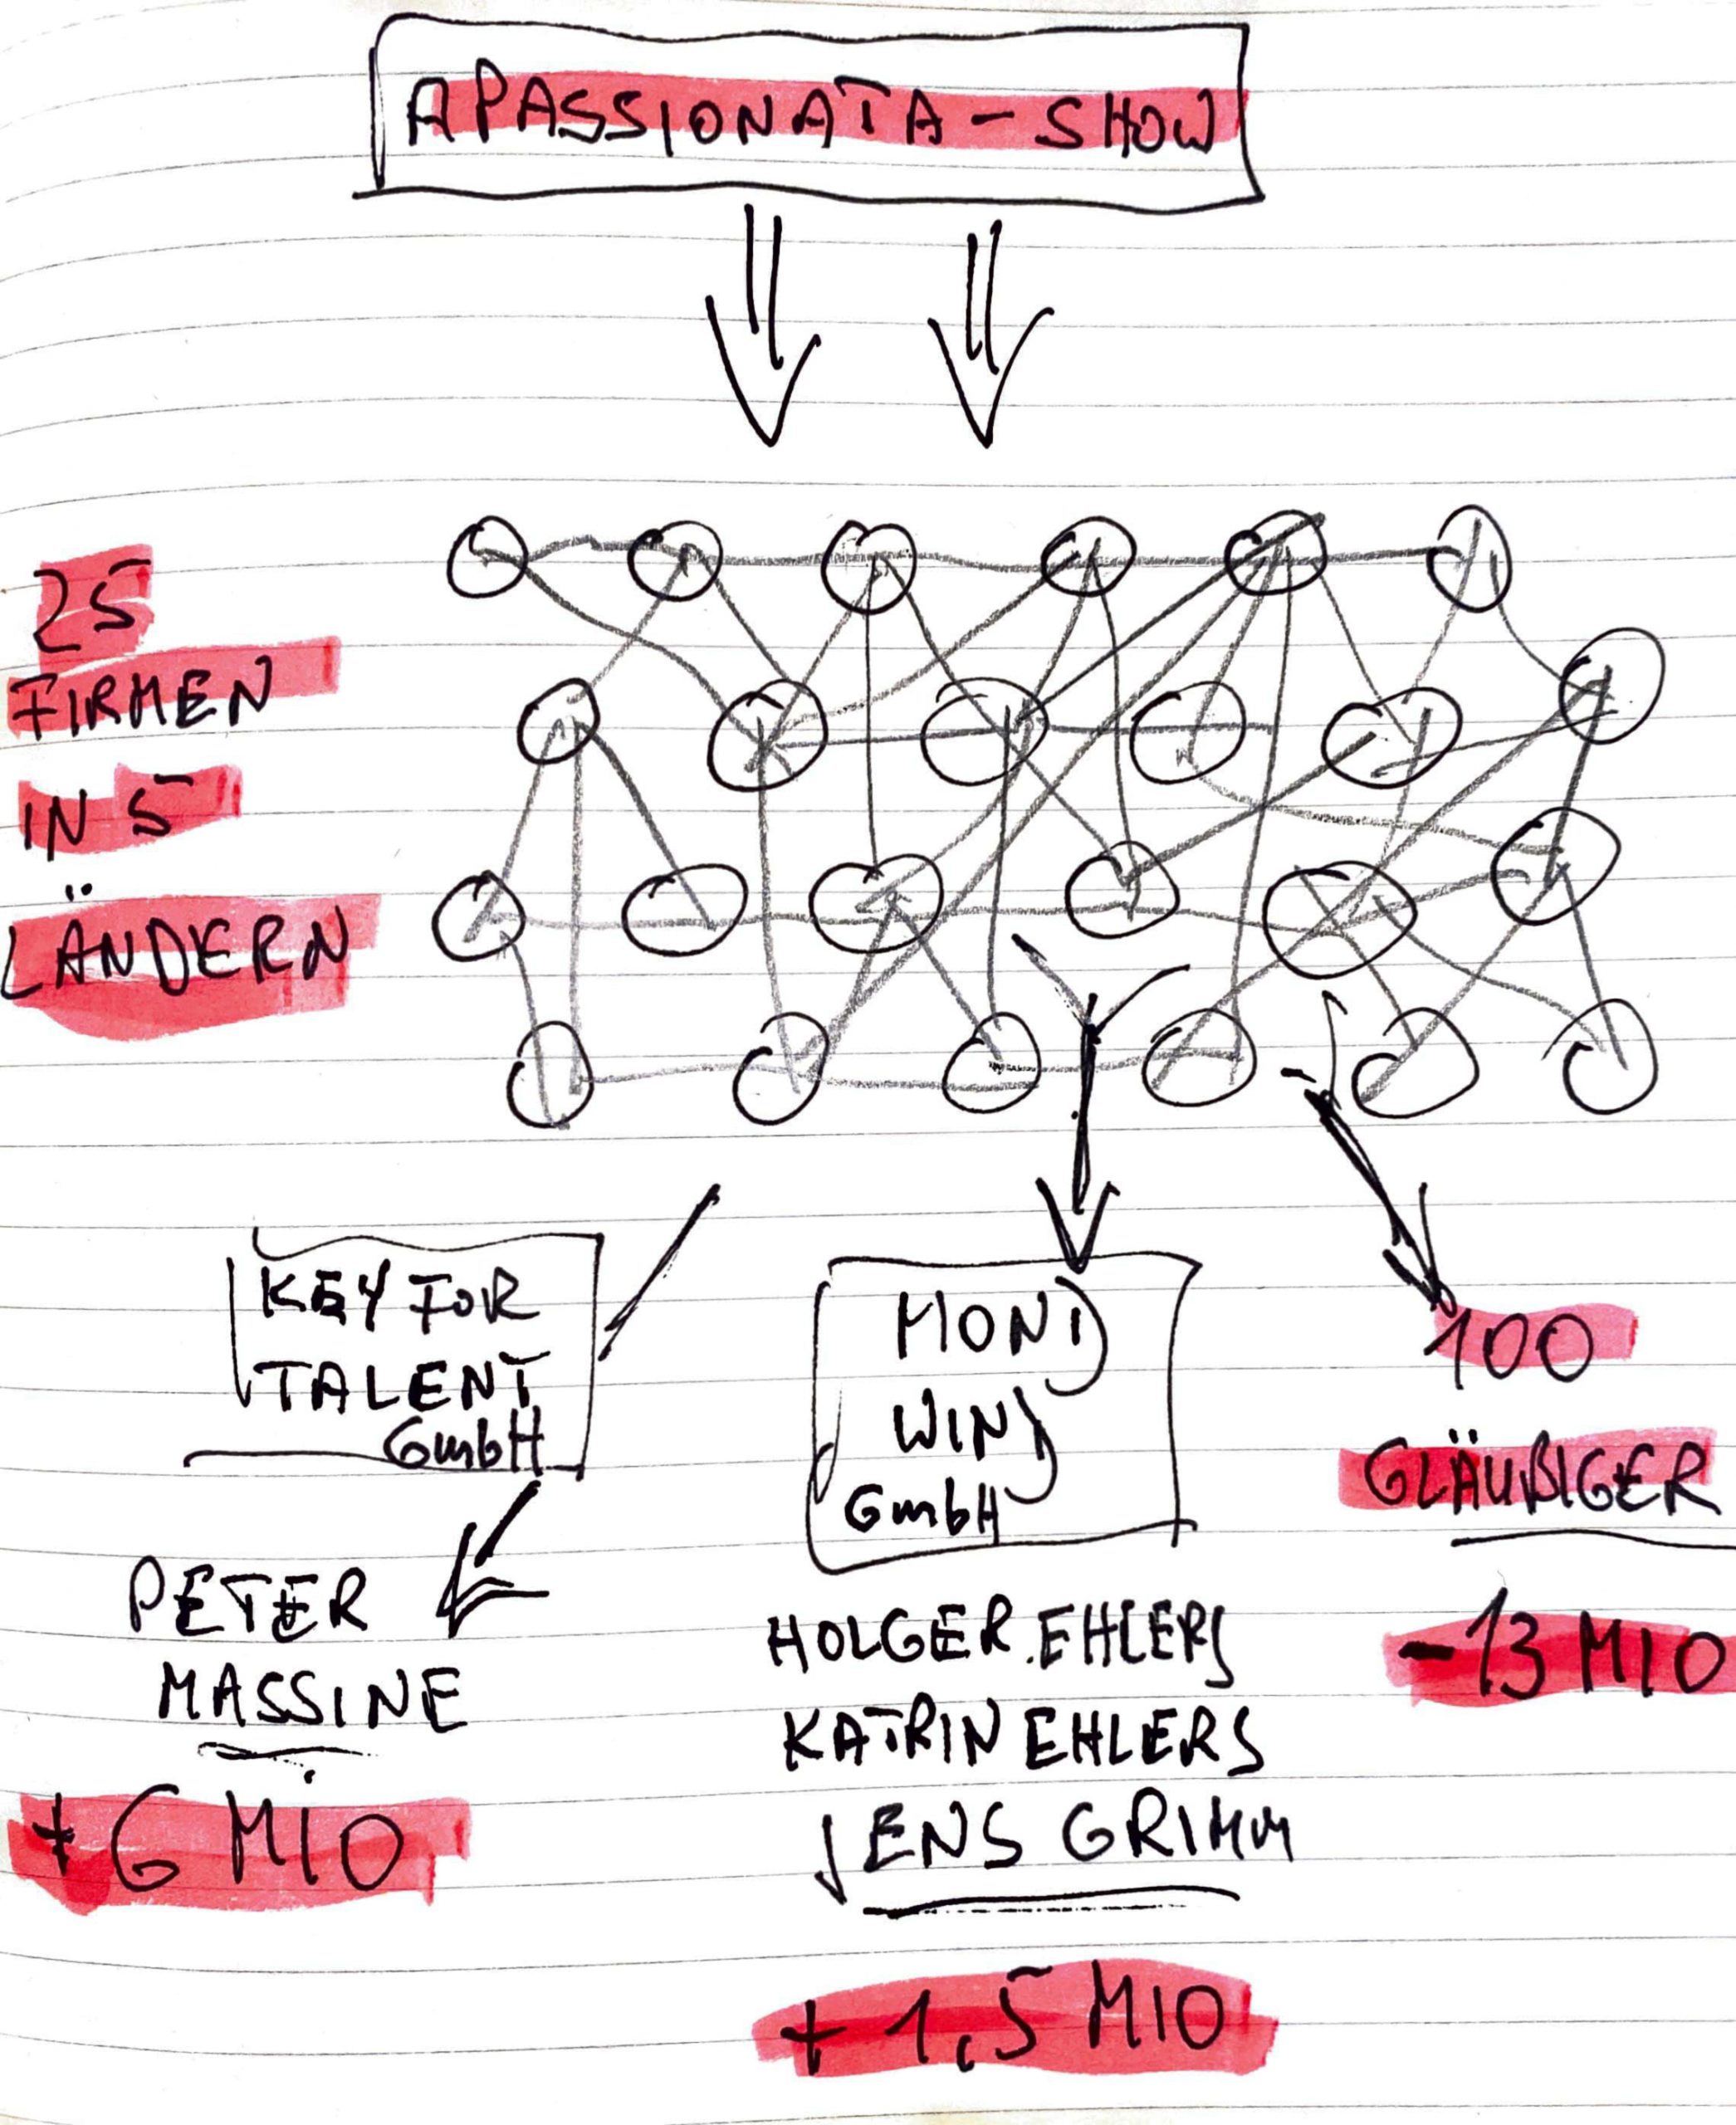 APASSIONATA - SHOW
25
FIRMEN
IN 5
LÄNDERN
KEY FOR
TALENT
GmbH
PETER
MASSINE
+ 6 MIO
MOND
WIND
GmbH
HOLGER EHLERS
KATRIN EHLERS
JENS GRIMM
+ 1,5 MIO
100
GLÄUBIGER
-13 MIO